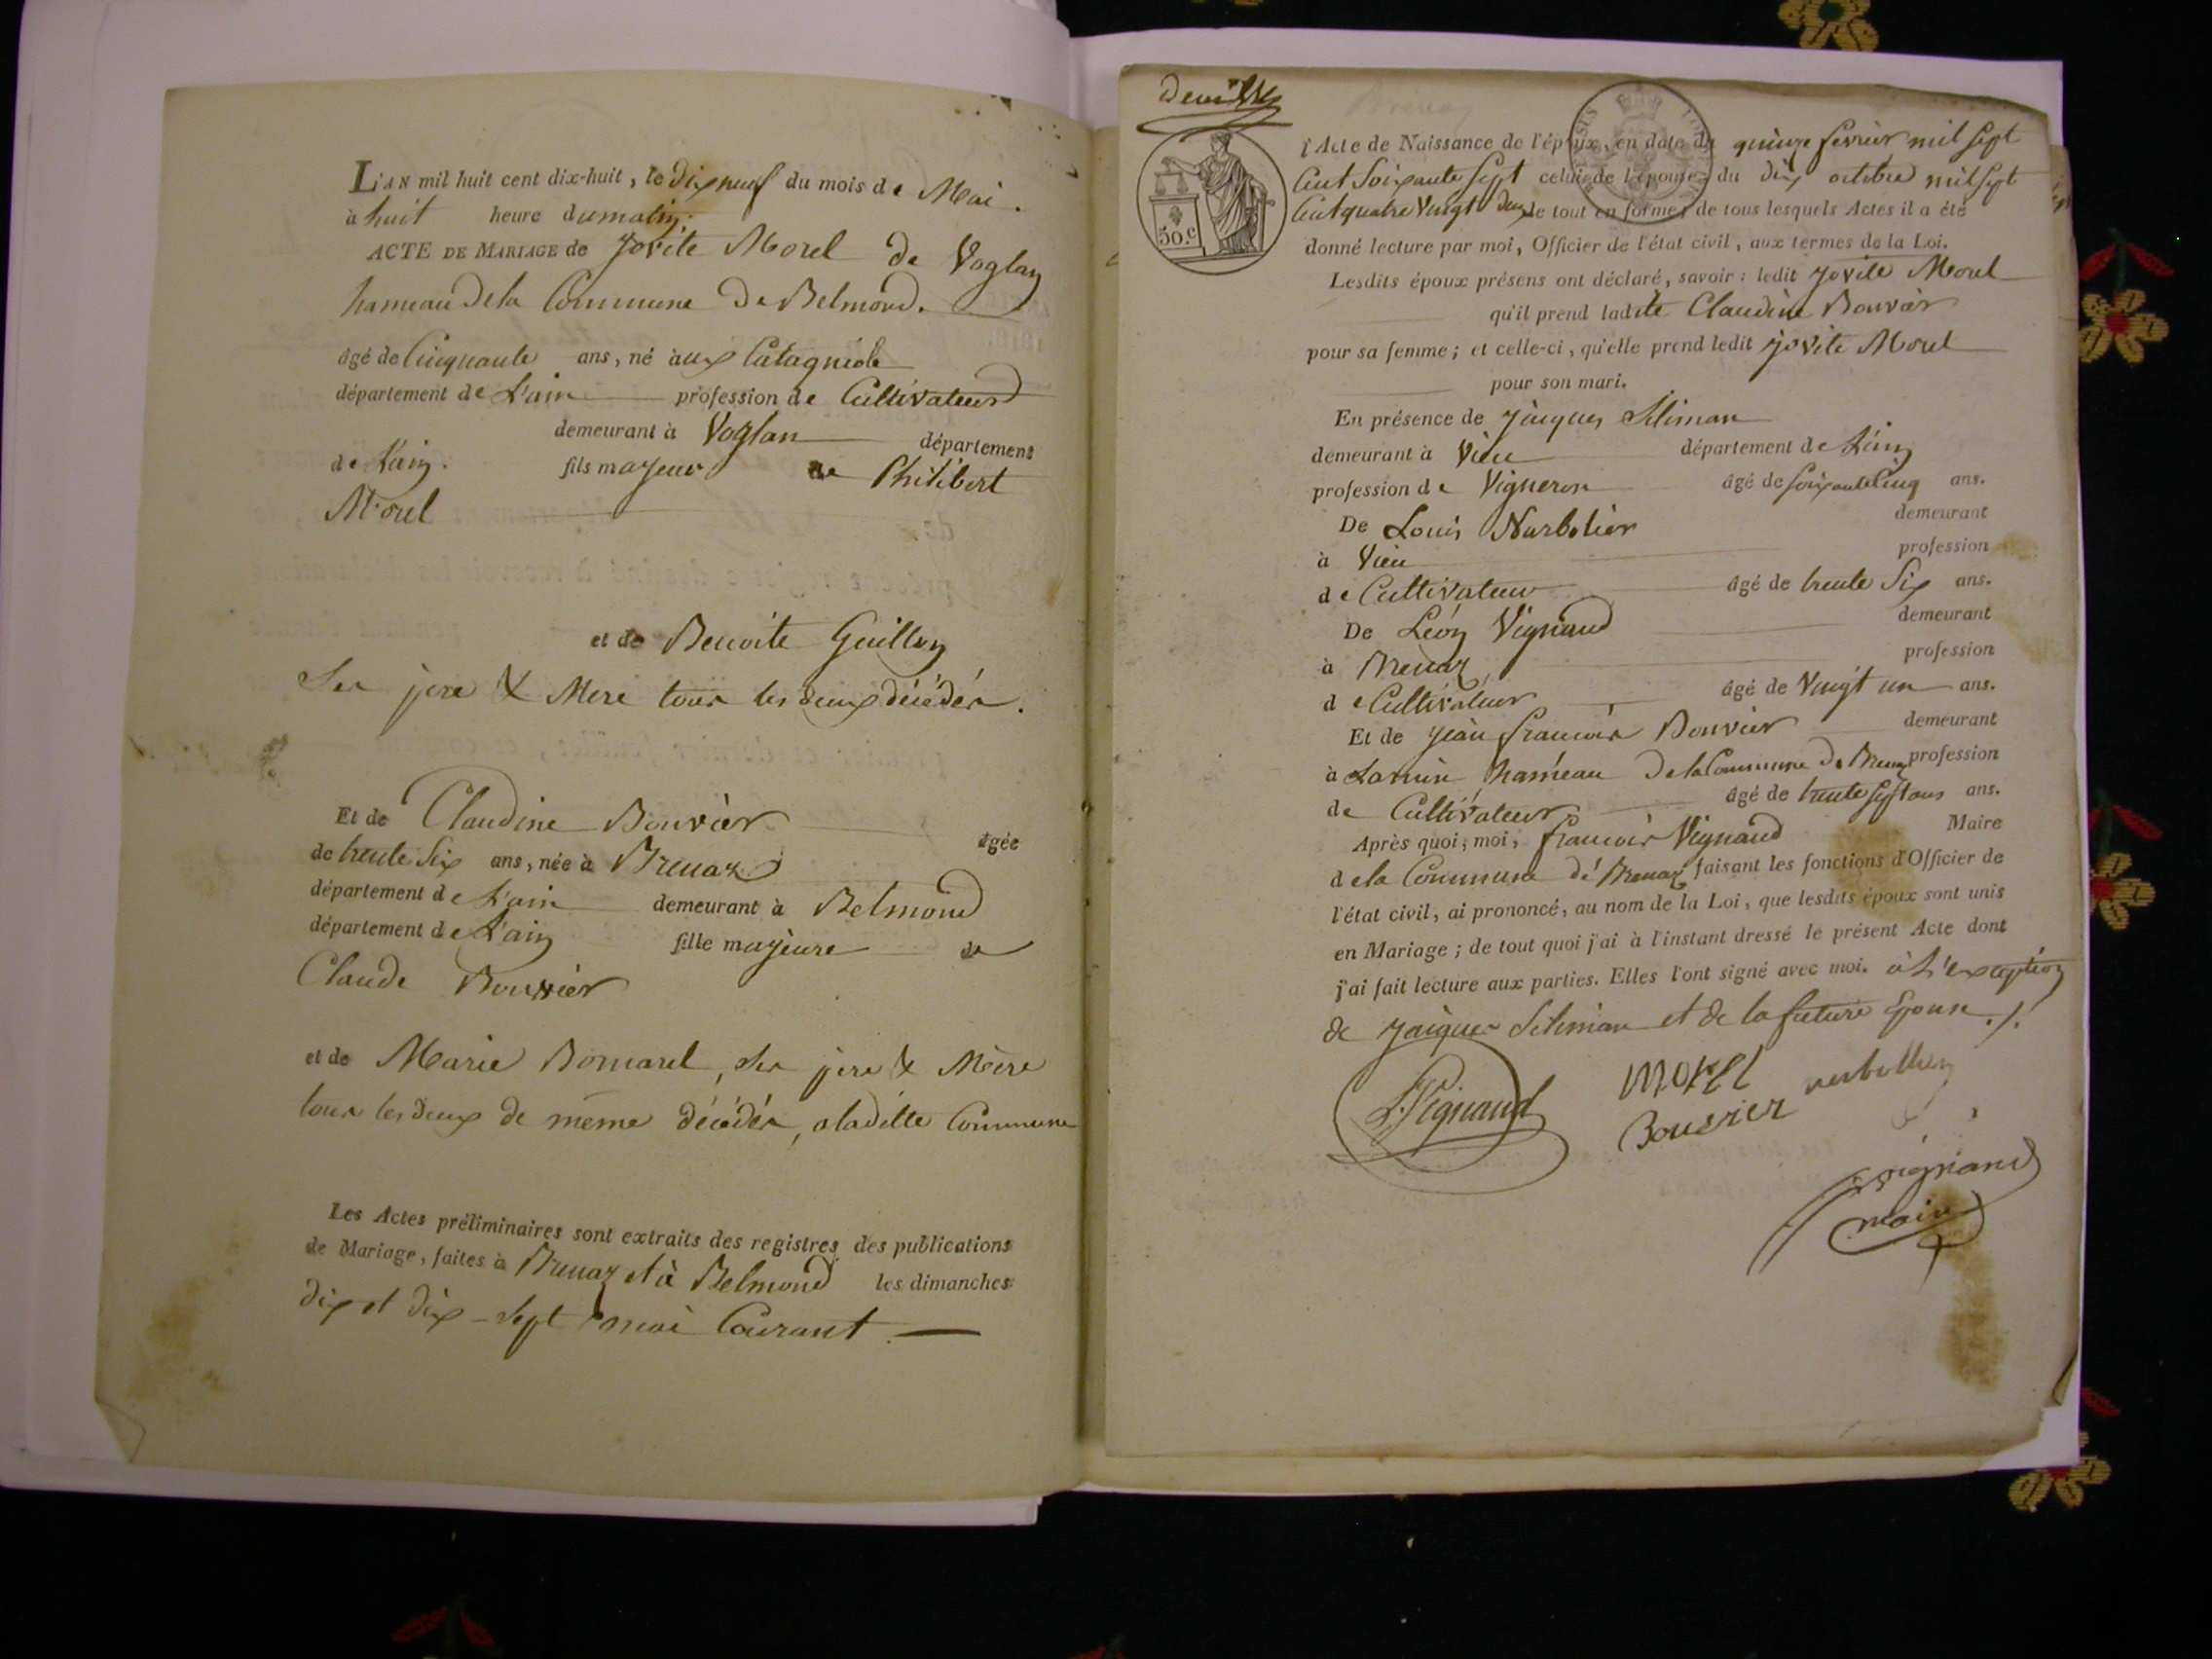 L'AN mil huit cent dix-huit, le dix neuf du mois de Mai.
à huit heure du matin.
ACTE DE MARIAGE de Jovite Morel de Voglan
hameau de la Commune de Belmond.
âgé de Cinquante ans, né aux Catagniole
département de L'ain profession de Cultivateur
demeurant à Voglan département
de L'ain. fils majeur de Philibert
Morel
et de Benoite Guillon
Ses pere & Mere tous les deux décédés.
Et de Claudine Bouvier âgée
de trente Six ans, née à Brenaz
département de L'ain demeurant à Belmond
département de L'ain fille majeure de
Claude Bouvier
et de Marie Bomarel, Ses pere & Mère
tous les deux de même décédés, a laditte Commune
Les Actes préliminaires sont extraits des registres des publications
de Mariage, faites à Brenaz et à Belmond les dimanches
dix et dix-sept mai Courant
50.c
l'Acte de Naissance de l'époux, en date du quinze fevrier mil sept
Cent Soixante Sept celui de l'épouse, du dix octobre mil sept
Cent quatre Vingt deux le tout en formes, de tous lesquels Actes il a été
donné lecture par moi, Officier de l'état civil, aux termes de la Loi.
Lesdits époux présens ont déclaré, savoir : ledit Jovite Morel
qu'il prend ladite Claudine Bouvier
pour sa femme ; et celle-ci, qu'elle prend ledit Jovite Morel
pour son mari.
En présence de Jacques Siliman
demeurant à Vieu département de L'ain
profession de Vigneron âgé de Soixante Cinq ans.
De Louis Narbolier demeurant
à Vieu profession
de Cultivateur âgé de trente Six ans.
De Léon Vignand demeurant
à Brenaz profession
de Cultivateur âgé de Vingt un ans.
Et de Jean francois Bouvier demeurant
à hameau de la Commune de Brenaz profession
de Cultivateur âgé de trente Sept ans ans.
Après quoi, moi, francois Vignand Maire
de la Commune de Brenaz faisant les fonctions d'Officier de
l'état civil, ai prononcé, au nom de la Loi, que lesdits époux sont unis
en Mariage ; de tout quoi j'ai à l'instant dressé le présent Acte dont
j'ai fait lecture aux parties. Elles l'ont signé avec moi. à L'exception
de Jacques Siliman et de la future Epouse ./.
L. Vignand morel
Bouvier
vignand
maire